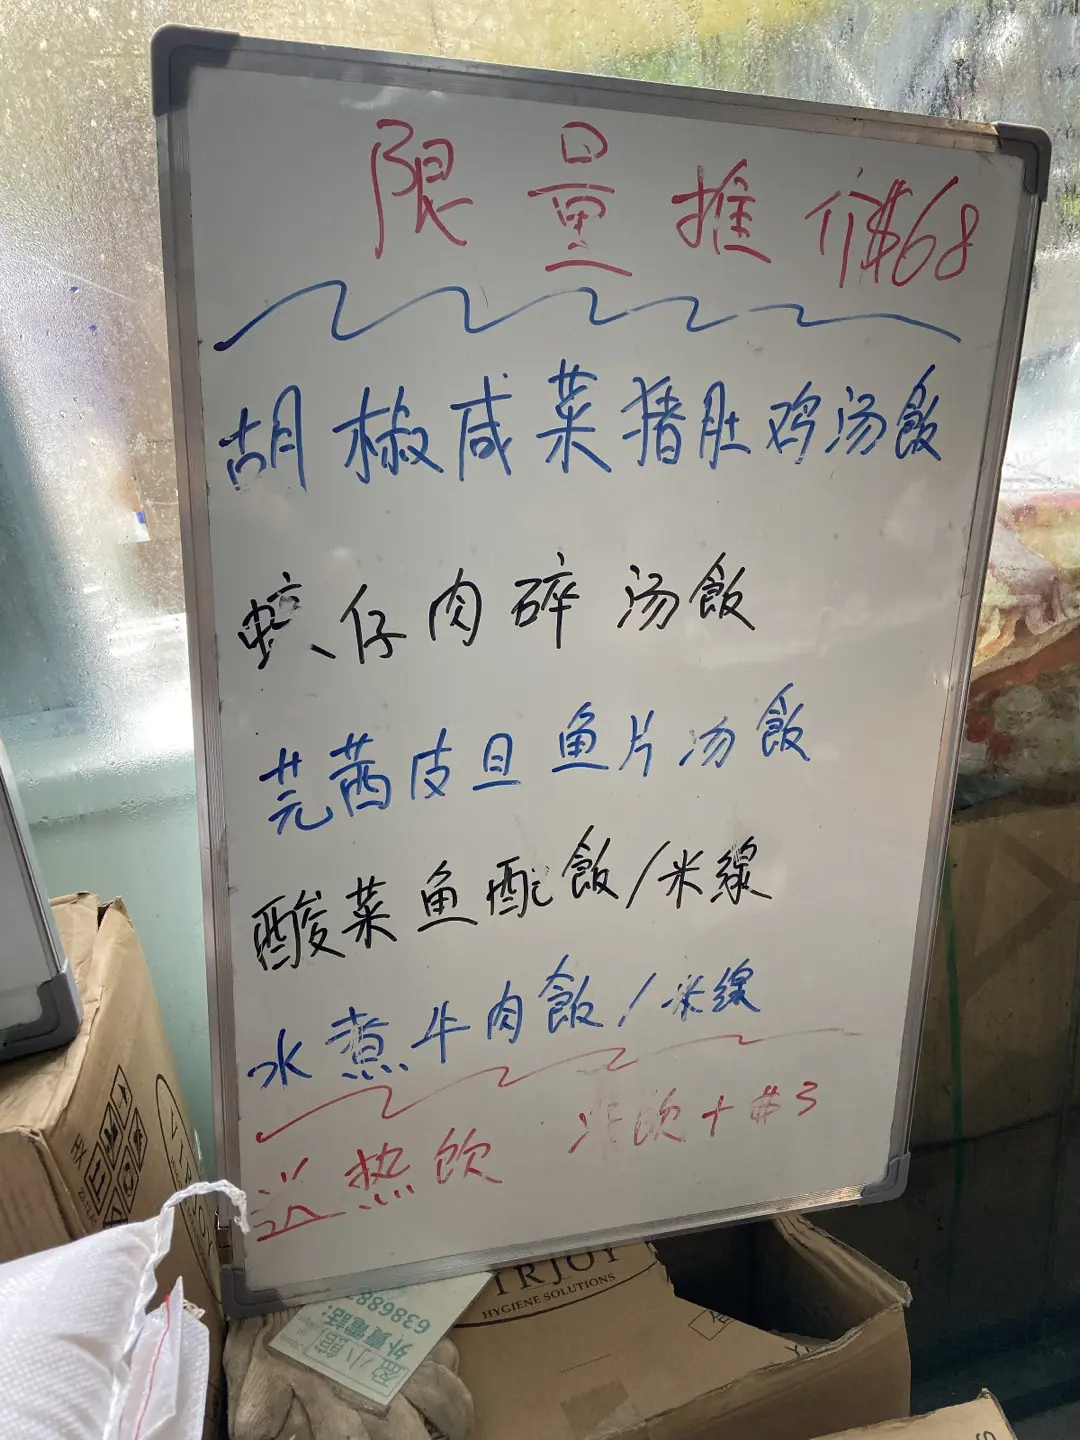 限量推介$68
胡椒咸菜猪肚鸡汤飯
蚝仔肉碎汤飯
芫茜皮旦鱼片汤飯
酸菜鱼配飯/米線
水煮牛肉飯/米線
送热饮 冻饮+#3
YRJOY
HYGIENE SOLUTIONS
小館
外賣電話:
638688
HX